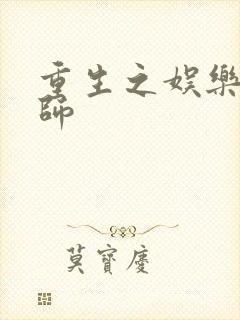 重生之娛樂
師
莫寶慶